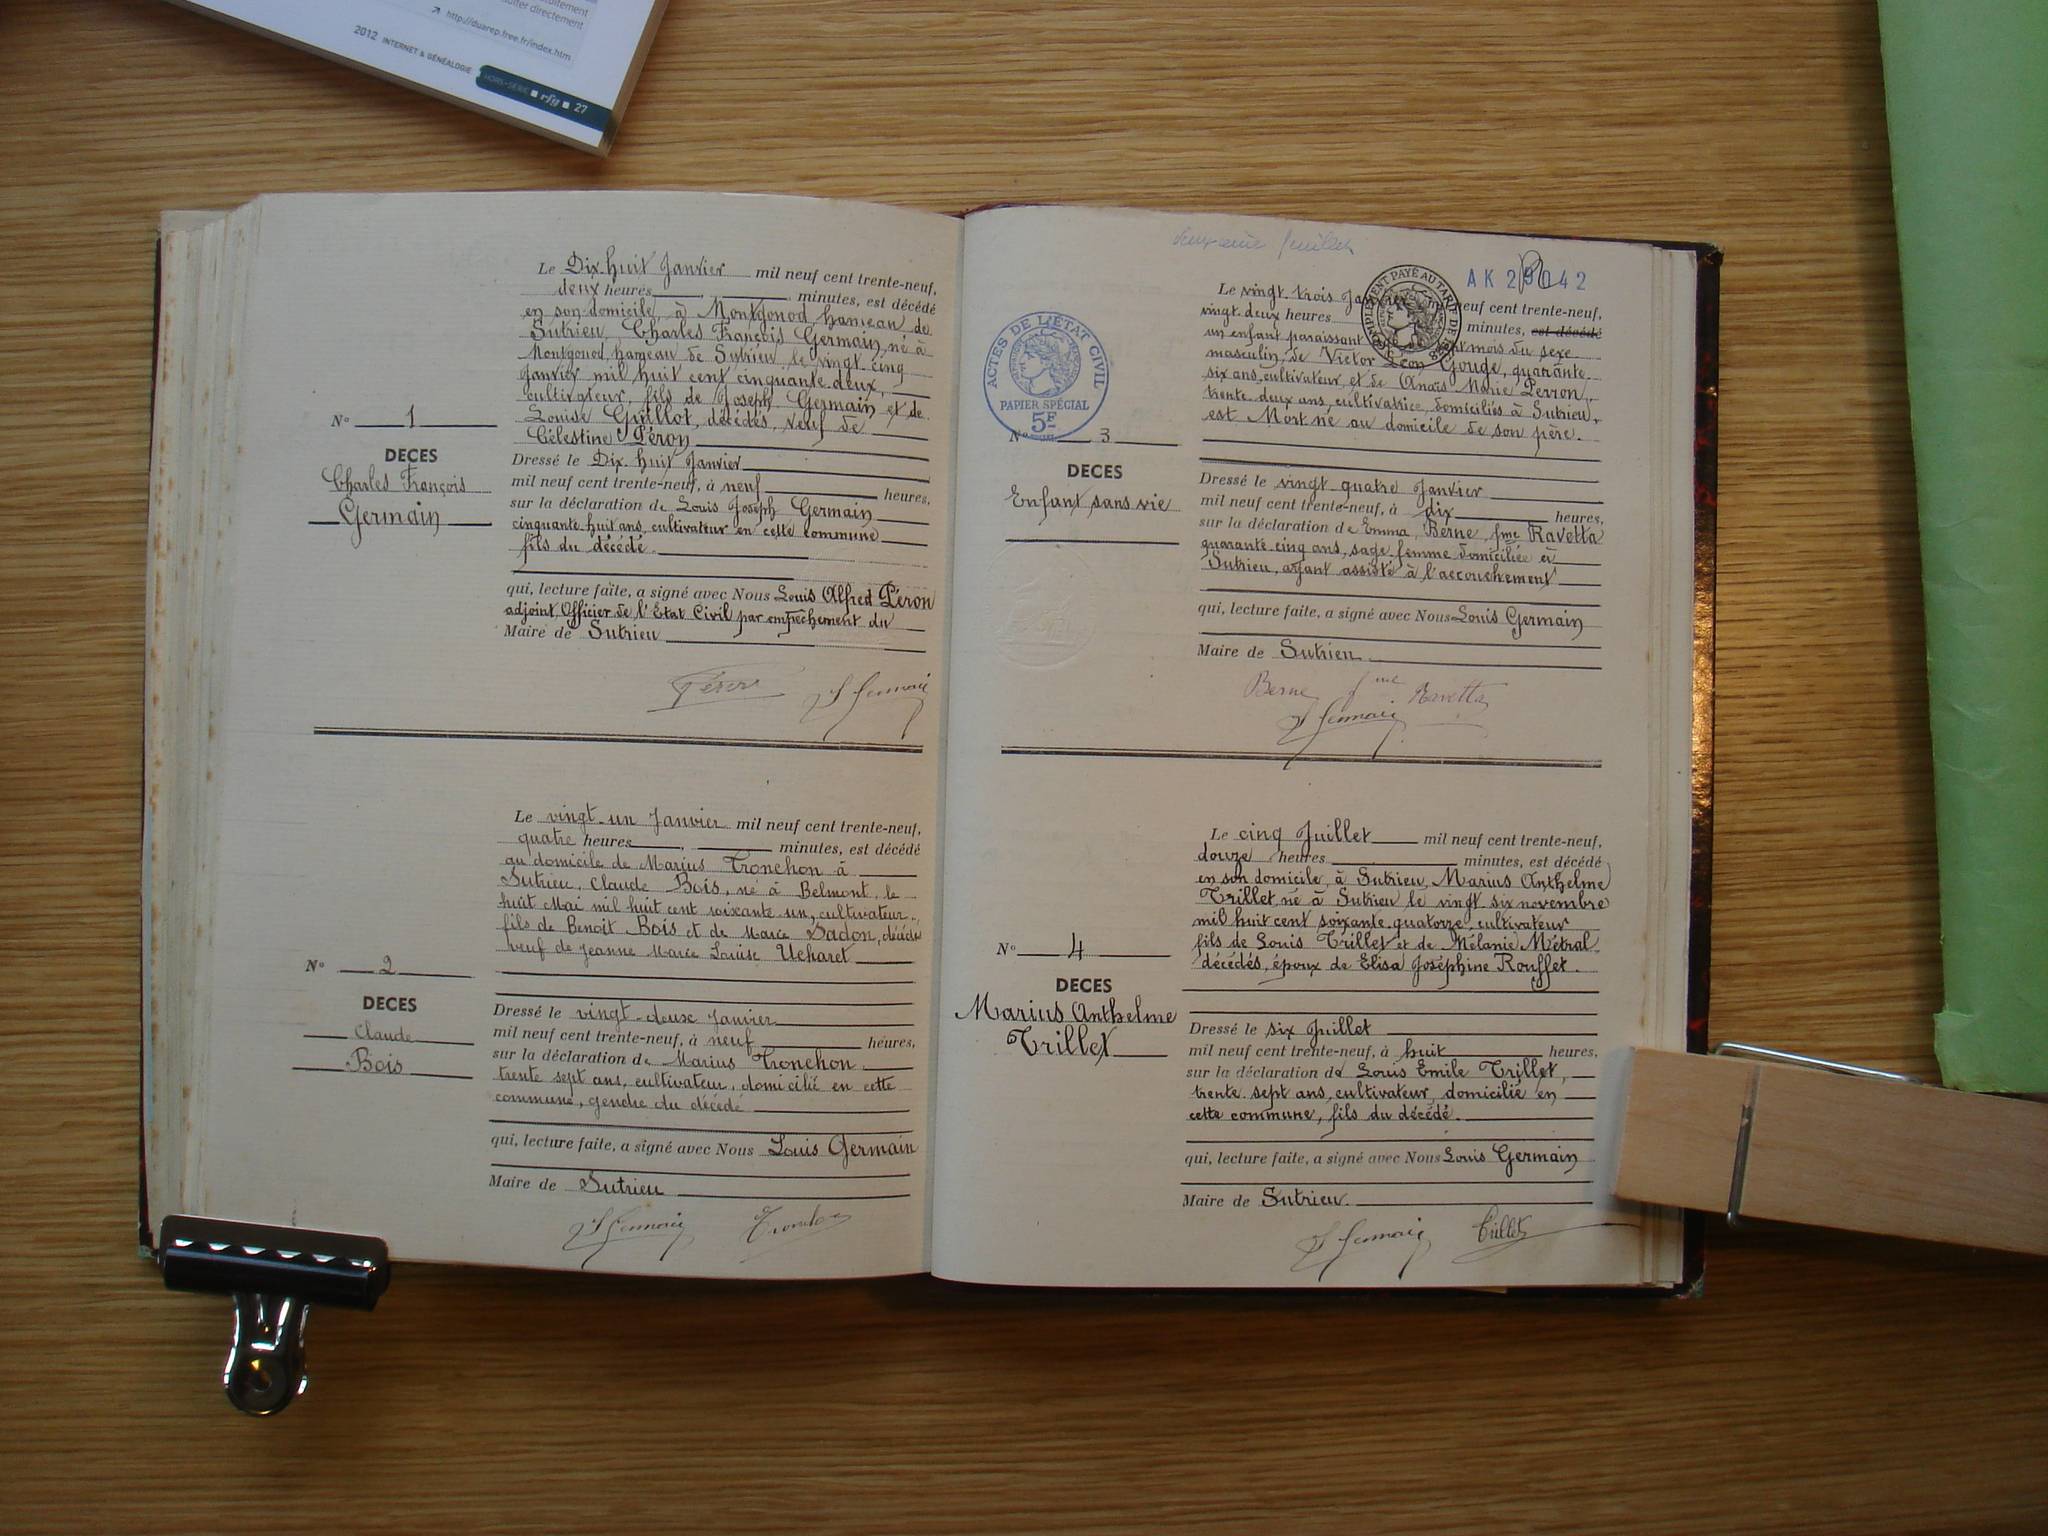 uitement
ulter directement
http://duarep.free.fr/index.htm
2012 INTERNET & GÉNÉALOGIE HORS-SÉRIE rfg 27
Le Dix-huit Janvier mil neuf cent trente-neuf,
deux heures, minutes, est décédé
en son domicile, à Montgonod, hameau de
Sutrieu, Charles François Germain, né à
Montgonod, hameau de Sutrieu le vingt cinq
Janvier mil huit cent cinquante deux,
cultivateur, fils de Joseph Germain et de
Louise Guillot, décédés, veuf de
Célestine Péron
N° 1
DECES
Charles François
Germain
Dressé le Dix huit Janvier
mil neuf cent trente-neuf, à neuf heures,
sur la déclaration de Louis Joseph Germain
cinquante huit ans, cultivateur en cette commune
fils du décédé.
qui, lecture faite, a signé avec Nous Louis Alfred Péron
adjoint, Officier de l'Etat Civil par empêchement du
Maire de Sutrieu
Péron L Germain
Le vingt-un Janvier mil neuf cent trente-neuf,
quatre heures, minutes, est décédé
au domicile de Marius Tronchon à
Sutrieu, Claude Bois, né à Belmont, le
huit Mai mil huit cent soixante un, cultivateur,
fils de Benoit Bois et de Marie décédés
veuf de Jeanne Marie Louise
N° 2
DECES
Claude
Bois
Dressé le vingt-deux Janvier
mil neuf cent trente-neuf, à neuf heures,
sur la déclaration de Marius Tronchon
trente sept ans, cultivateur, domicilié en cette
commune, gendre du décédé
qui, lecture faite, a signé avec Nous Louis Germain
Maire de Sutrieu
L Germain Tronchon
Juillet
AK 29042
COMPLEMENT PAYÉ AU TARIF DE 1938
ACTES DE L'ÉTAT CIVIL
PAPIER SPÉCIAL
5F
Le vingt trois Janvier mil neuf cent trente-neuf,
vingt deux heures minutes, est décédé
un enfant paraissant mois du sexe
masculin, de Victor Léon Gouge, quarante
six ans, cultivateur, et de Anaïs Marie Perron,
trente deux ans, cultivatrice, domiciliés à Sutrieu,
est Mort né au domicile de son père.
N° 3
DECES
Enfant sans vie
Dressé le vingt quatre Janvier
mil neuf cent trente-neuf, à dix heures,
sur la déclaration de Emma Berne, fme Ravetta
quarante cinq ans, sage femme domiciliée à
Sutrieu, ayant assisté à l'accouchement
qui, lecture faite, a signé avec Nous Louis Germain
Maire de Sutrieu
Berne fme Ravetta
L Germain
Le cinq Juillet mil neuf cent trente-neuf,
douze heures minutes, est décédé
en son domicile, à Sutrieu, Marius Anthelme
Trillet, né à Sutrieu le vingt six novembre
mil huit cent soixante quatorze, cultivateur
fils de Louis Trillet et de Mélanie Métral
décédés, époux de Elisa Joséphine Rouffet.
N° 4
DECES
Marius Anthelme
Trillet
Dressé le six Juillet
mil neuf cent trente-neuf, à huit heures,
sur la déclaration de Louis Emile Trillet,
trente sept ans, cultivateur, domicilié en
cette commune, fils du décédé.
qui, lecture faite, a signé avec Nous Louis Germain
Maire de Sutrieu.
L Germain Trillet